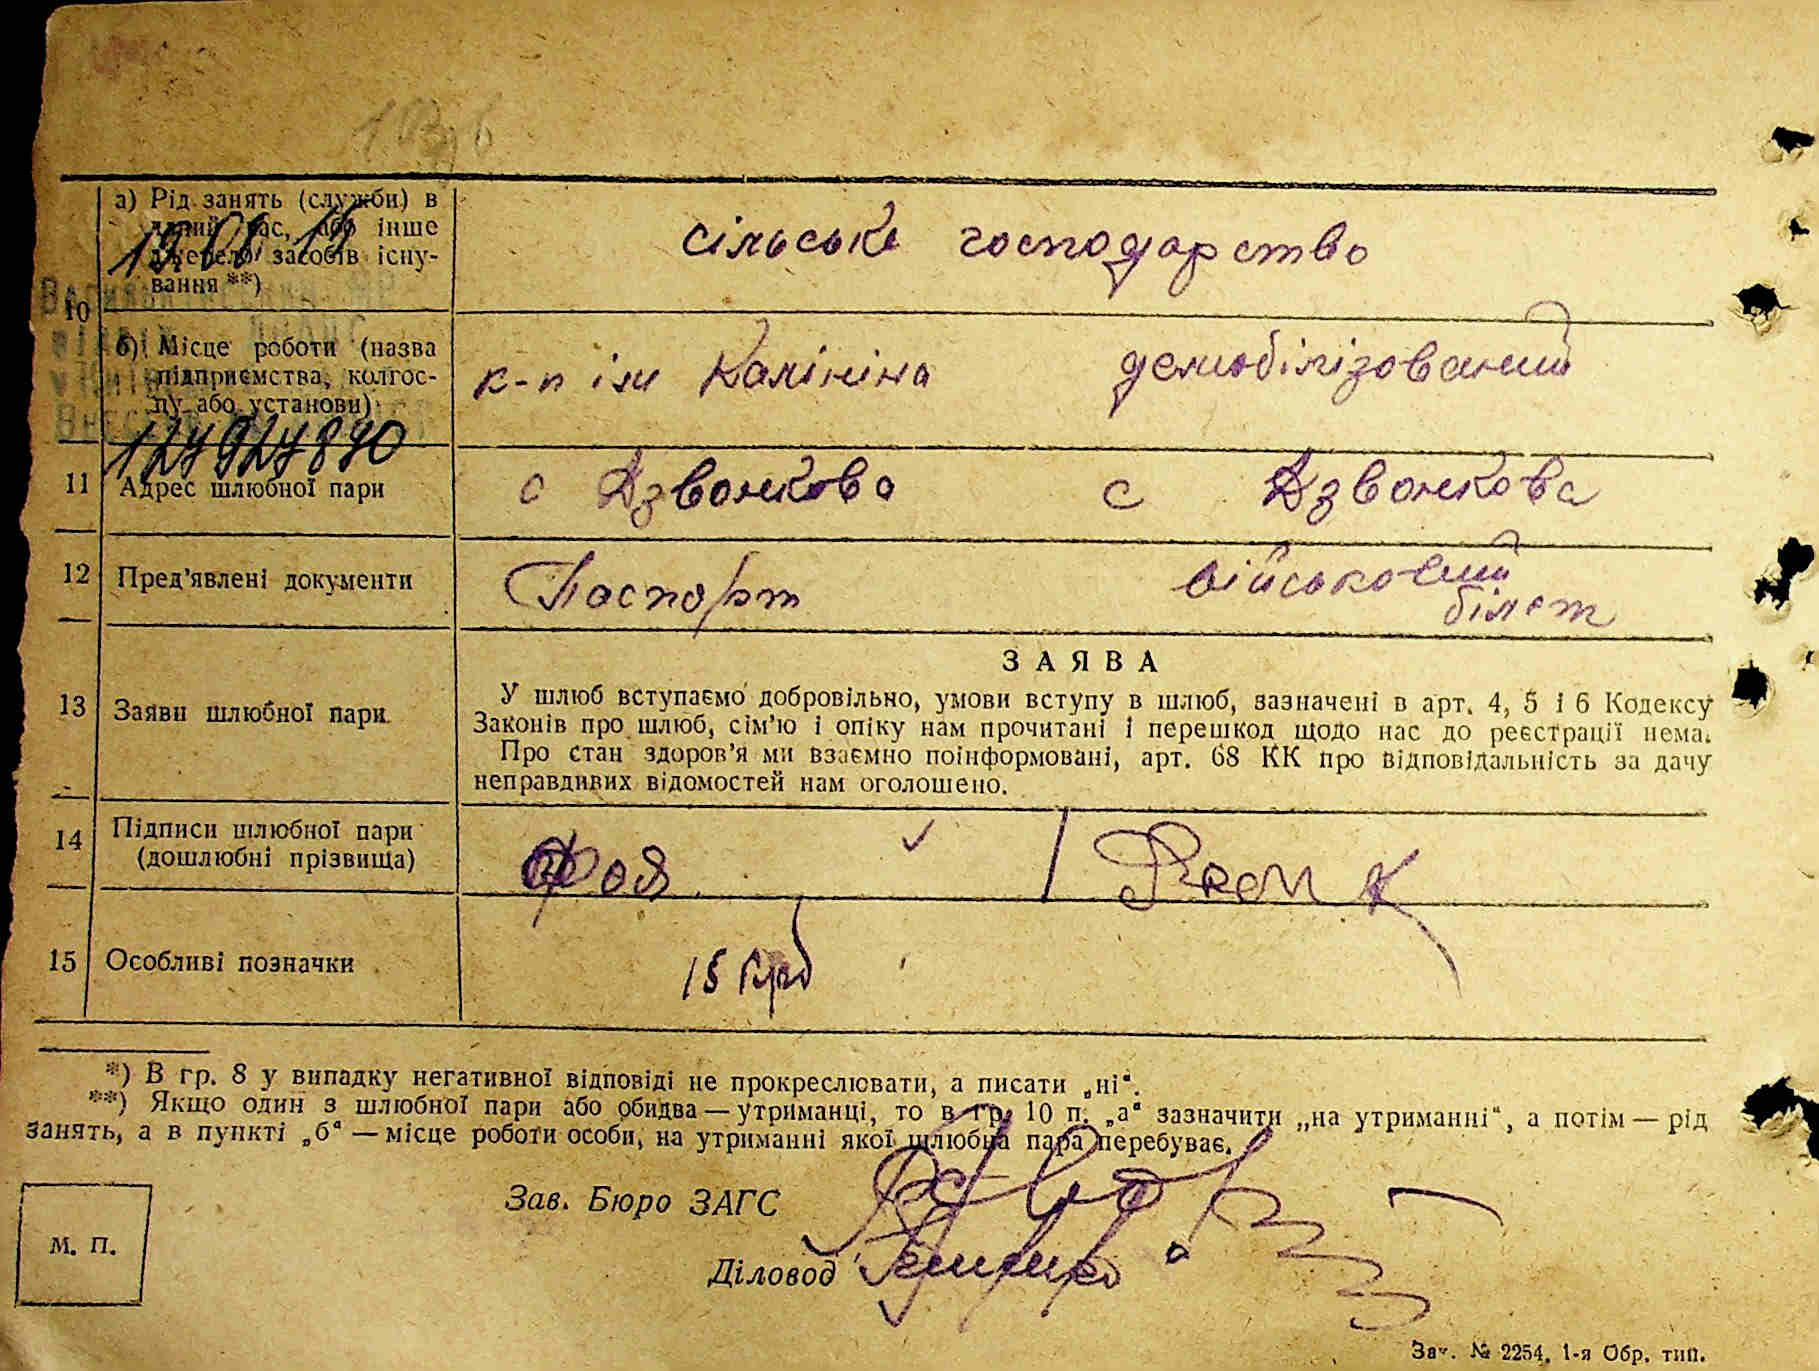 а) Рід занять (служби) в
даний час, або інше
джерело засобів існу-
вання **)
19.06.15
сільське господарство
10
б) Місце роботи (назва
підприємства, колгос-
пу або установи)
к-п ім Калініна демобілізований
124924890
11 Адрес шлюбної пари с Дзвонкова с Дзвонкова
12 Пред’явлені документи Паспорт військовий
білет
ЗАЯВА
13 Заяви шлюбної пари
У шлюб вступаємо добровільно, умови вступу в шлюб, зазначені в арт. 4, 5 і 6 Кодексу
Законів про шлюб, сім’ю і опіку нам прочитані і перешкод щодо нас до реєстрації нема.
Про стан здоров’я ми взаємно поінформовані, арт. 68 КК про відповідальність за дачу
неправдивих відомостей нам оголошено.
14 Підписи шлюбної пари
(дошлюбні прізвища)
15 Особливі позначки 15 крб
*) В гр. 8 у випадку негативної відповіді не прокреслювати, а писати „ні“.
**) Якщо один з шлюбної пари або обидва — утриманці, то в гр. 10 п. „а“ зазначити „на утриманні“, а потім — рід
занять, а в пункті „б“ — місце роботи особи, на утриманні якої шлюбна пара перебуває.
Зав. Бюро ЗАГС
М. П.
Діловод
Зач. № 2254. 1-я Обр. тип.